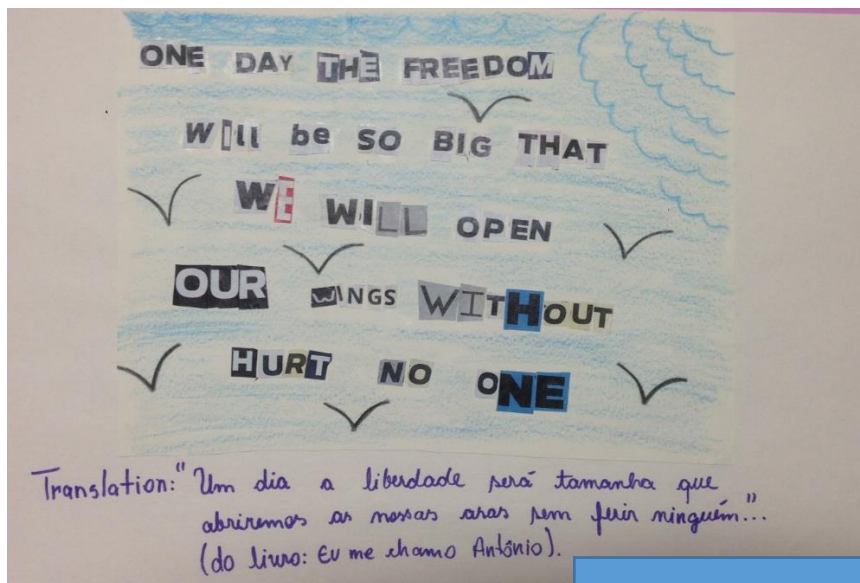 ONE DAY THE FREEDOM
Will be SO BIG THAT
WE WILL OPEN
OUR WINGS WITHOUT
HURT NO ONE
Translation: "Um dia a liberdade será tamanha que
abriremos as nossas asas sem ferir ninguém"...
(do livro: Eu me chamo Antônio).